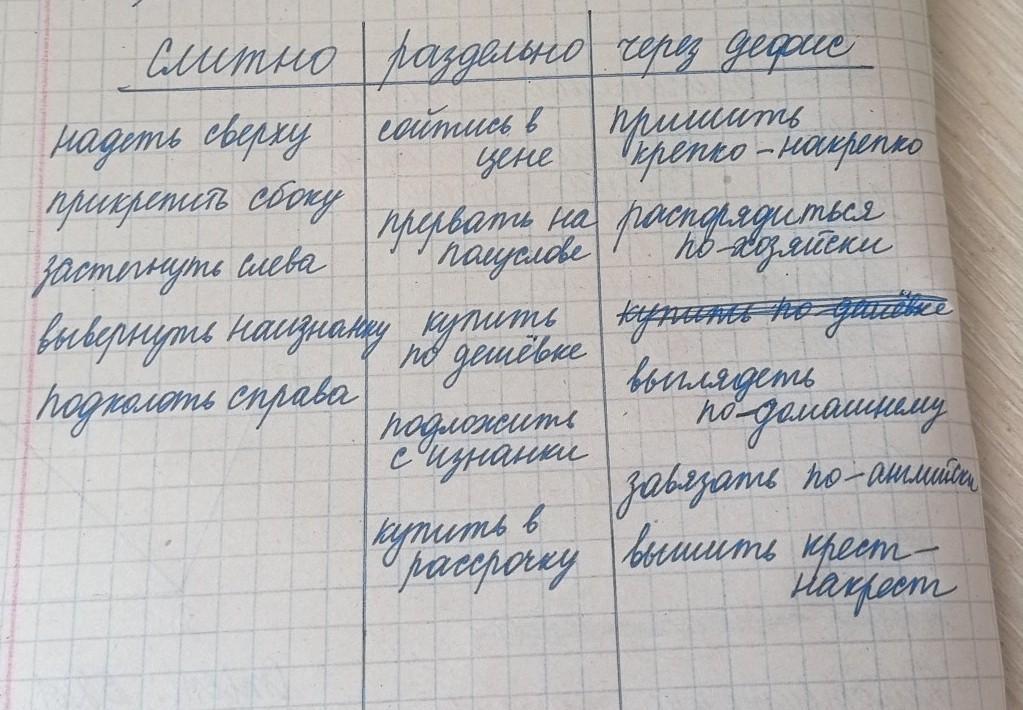 слитно
надеть сверху
прикрепить сбоку
застегнуть слева
вывернуть наизнанку
подколоть справа
раздельно
сойтись в
цене
прервать на
полуслове
купить
по дешёвке
подложить
с изнанки
купить в
рассрочку
через дефис
пришить
крепко-накрепко
распорядиться
по-хозяйски
купить по дешёвке
выглядеть
по-домашнему
завязать по-английски
вышить крест-
накрест